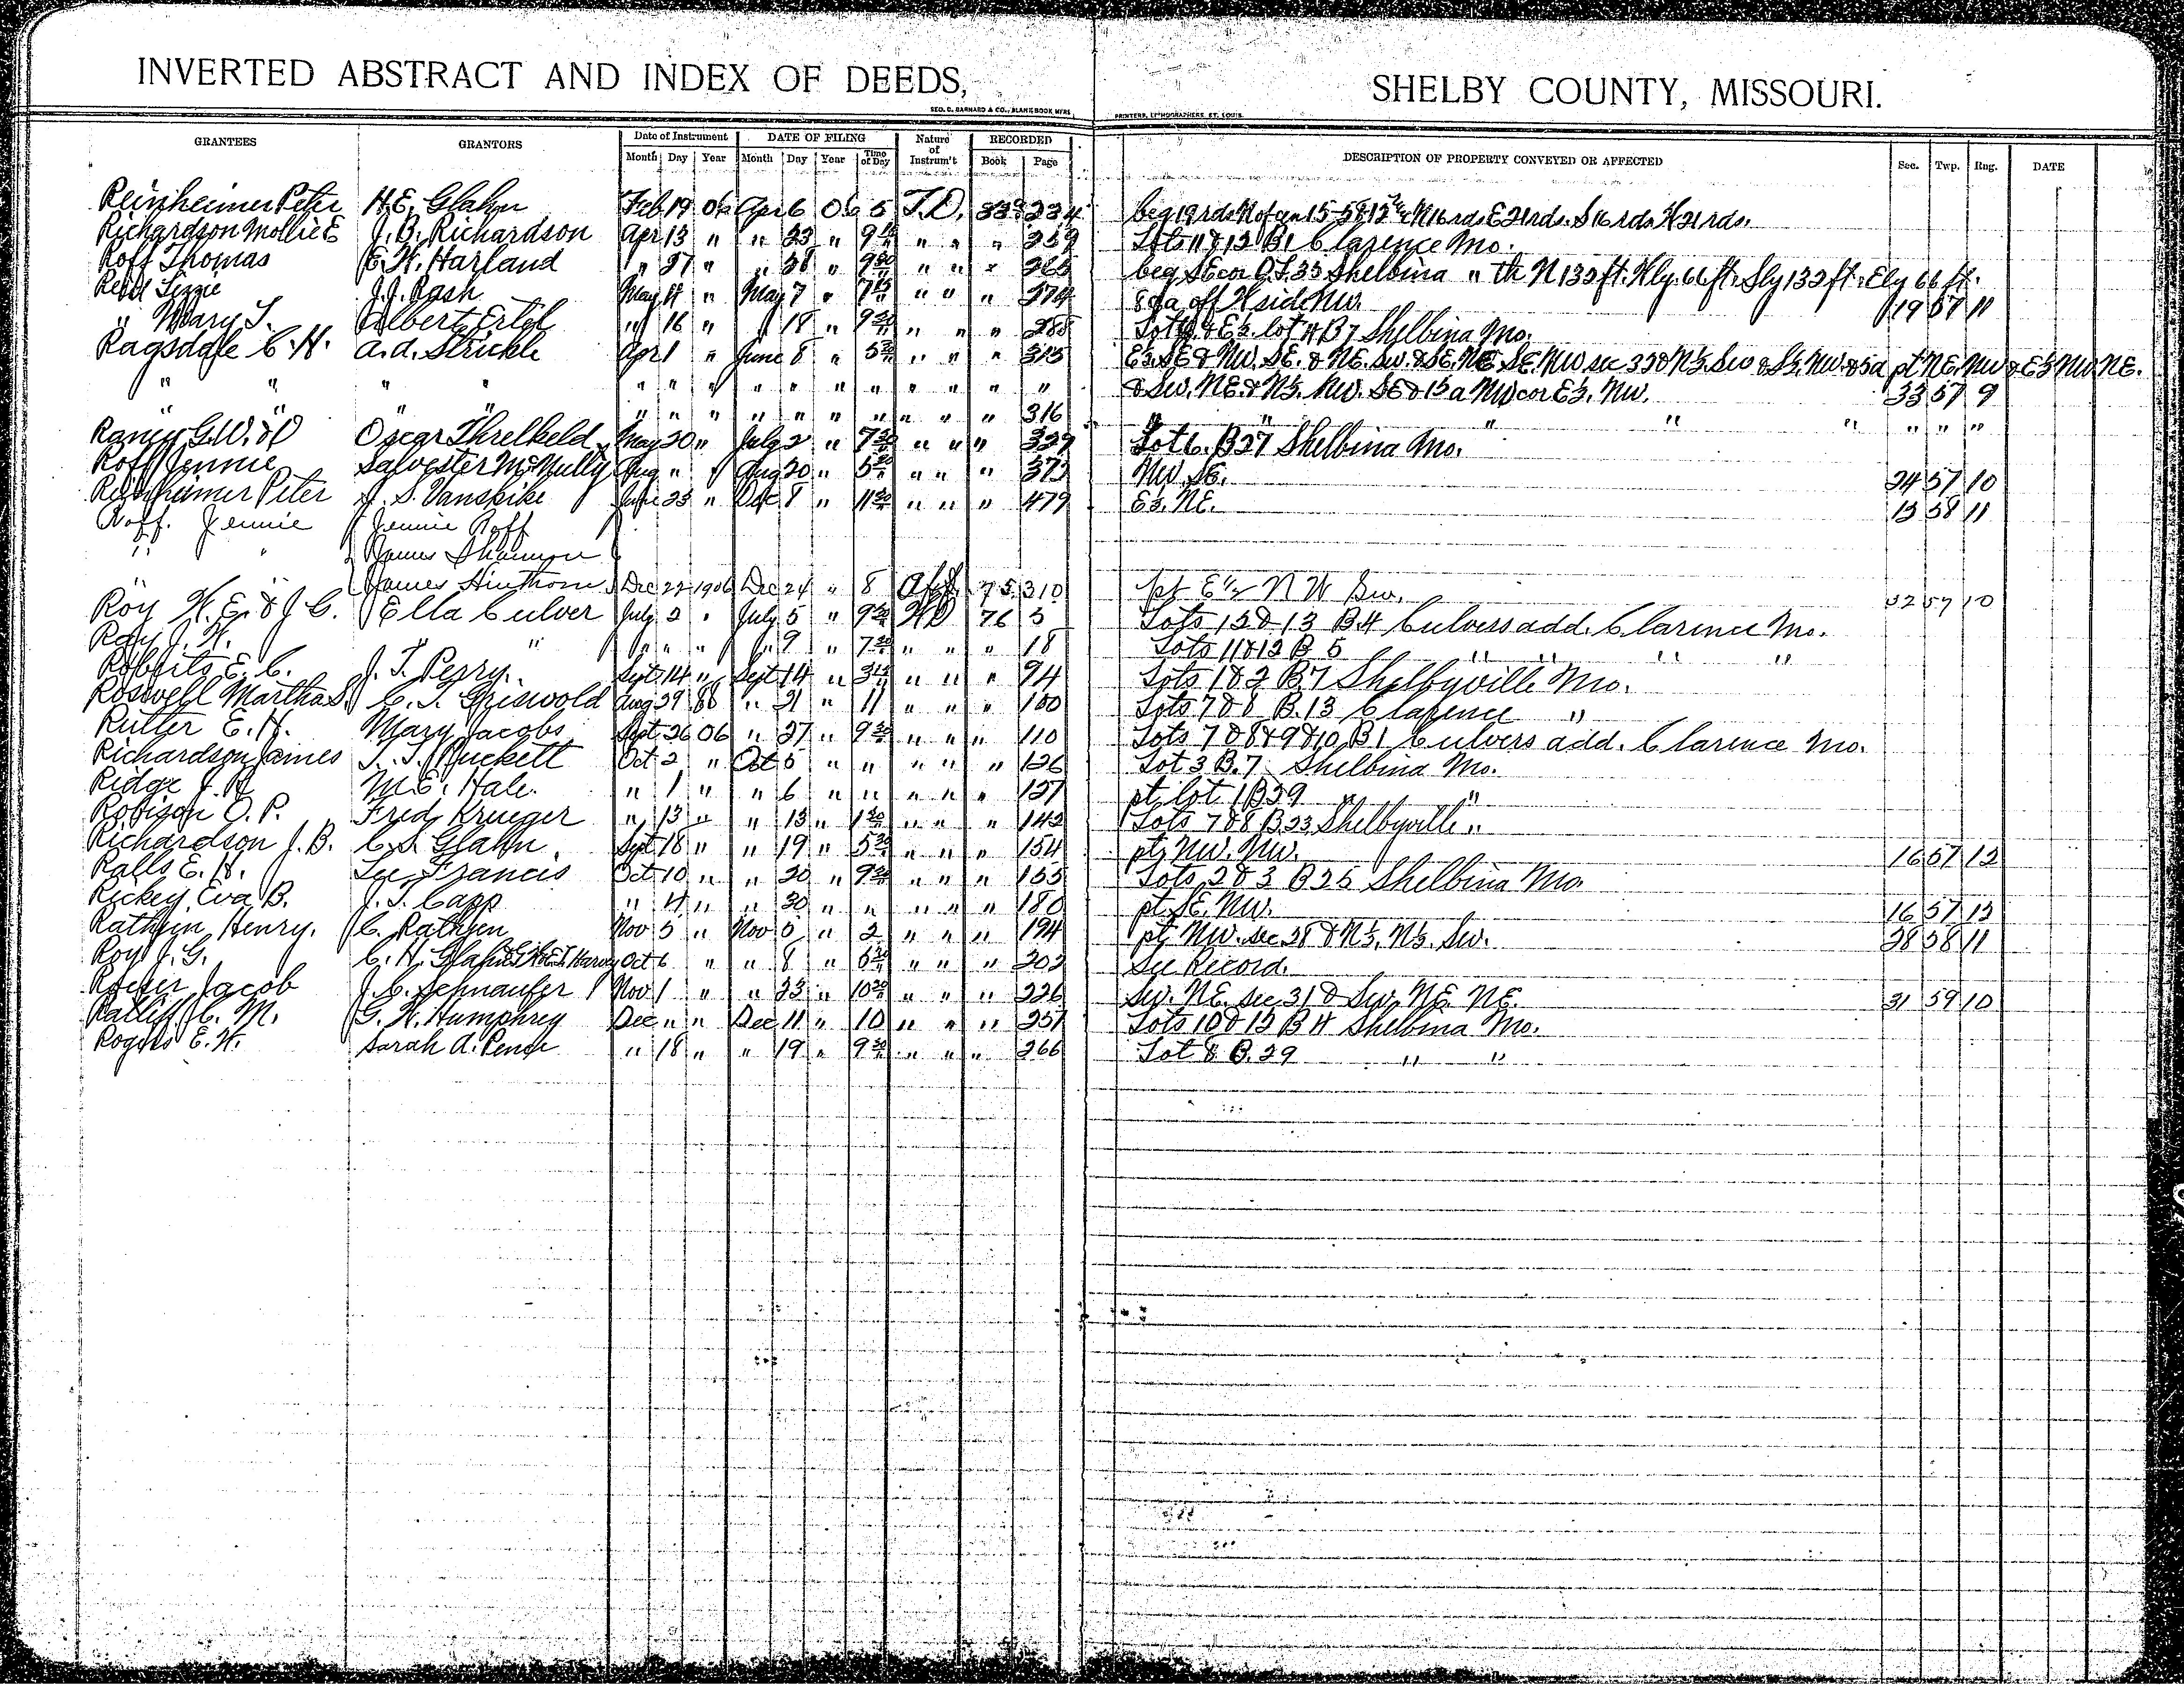 INVERTED ABSTRACT AND INDEX OF DEEDS, SHELBY COUNTY, MISSOURI.
GEO. D. BARNARD & CO., BLANK BOOK MFRS. PRINTERS, LITHOGRAPHERS, ST. LOUIS.
GRANTEES GRANTORS Date of Instrument DATE OF FILING Nature of Instrum't RECORDED DESCRIPTION OF PROPERTY CONVEYED OR AFFECTED Sec. Twp. Rng. DATE
Month Day Year Month Day Year Time of Day Book Page
Reinheimer Peter H.E. Glahn Feb 19 06 Apr 6 06 5 T.D. 234 beg 19 rds N of 15-58-12 N 16 rds E 21 rds. S 16 rds. W 21 rds.
Richardson Mollie E J. B. Richardson Apr 13 " " 23 " 9 " " " 259 Lots 11 & 12 B1 Clarence Mo.
Roff Thomas E. W. Harland " 27 " " 28 " 9 30 " " " 265 beg SE cor O.L. 35 Shelbina " th N 132 ft. Wly. 66 ft. Sly 132 ft. Ely 66 ft.
Lizzie J.J. Rash May 4 " May 7 " 7 " " " 274 80a off W side NW. 19 57 11
" Mary T. Albert Ertel " 16 " " 18 " 9 30 " " " 288 & E½ lot 4 B7 Shelbina Mo.
Ragsdale C. H. A.A. Strickle Apr 1 " June 8 " 5 30 " " " 315 E½ SE & NW. SE. & NE. SW. & SE. NE. SE. NW sec 33 & N½ SW & S½ NW. & 5a pt NE. NW & E½ NW NE.
" " " " " " " " " " " " " " " & SW. NE. & N½. NW. SE & 15a NW cor E½. NW. 33 57 9
" " " " " " " " " " " " " " 316 " " " " " " " "
G.W. & O Oscar Threlkeld May 20 " July 2 " 7 30 " " " 329 Lot 6. B27 Shelbina Mo.
Roff Jennie Salvester McNully Aug " " Aug 20 " 5 30 " " " 373 NW. SE. 24 57 10
Reinheimer Peter J. S. Vanskike June 23 " Oct 8 " 11 30 " " " 479 E½. NE. 13 58 11
Roff. Jennie Jennie Roff
" " James Shannon
" " James Hinthorn Dec 22 1906 Dec 24 " 8 Aff. 75 310 pt E½ NW SW. 32 57 10
Roy W. E. & J. C. Ella Culver July 2 " July 5 " 9 30 WD 76 5 Lots 12 & 13 B4 Culvers add. Clarence Mo.
Roy J. W. " " " " " " 9 " 7 30 " " " 18 Lots 11 & 12 B 5 " " " "
Roberts E. C. J. T. Perry. Sept 14 " Sept 14 " 3 " " " 94 Lots 1 & 2 B7 Shelbyville Mo.
Roswell Martha S. C. T. Griswold Aug 29 88 " 21 " 11 " " " 100 Lots 7 & 8 B. 13 Clarence "
Rutter E. H. Mary Jacobs Sept 26 06 " 27 " 9 30 " " " 110 Lots 7 & 8 & 9 & 10 B1 Culvers add. Clarence Mo.
Richardson James T. J. Puckett Oct 2 " Oct 5 " " " " " 126 Lot 3 B. 7 Shelbina Mo.
Ridge J. R M. E. Hale. " 1 " " 6 " " " " " 127 pt lot 1 B29 " "
Robison O. P. Fred Krueger " 13 " " 13 " 1 30 " " " 142 Lots 7 & 8 B23 Shelbyville "
Richardson J. B. C. S. Glahn Sept 18 " " 19 " 5 30 " " " 154 pt NW. NW. 16 57 12
Ralls E. H. Lee Francis Oct 10 " " 20 " 9 30 " " " 155 Lots 2 & 3 B25 Shelbina Mo.
Rickey Eva B. J. T. Capp " 4 " " 30 " " " " " 180 pt SE. NW. 16 57 12
Rathjen Henry. C. Rathjen Nov 5 " Nov 6 " 2 " " " 194 pt NW. sec 28 & N½. N½. SW. 28 58 11
Roy J. G. C. H. Glahn Oct 6 " " 8 " 8 30 " " " 202 See Record.
Jacob J. C. Schnaufer Nov 1 " " 23 " 10 30 " " " 226 SW. NE. sec 31 & SW. NE. NE. 31 59 10
Ratliff C. M. G. W. Humphrey Dec " " Dec 11 " 10 " " " 251 Lots 10 & 12 B4 Shelbina Mo.
Rogers E. W. Sarah A. Pence " 18 " " 19 " 9 30 " " " 266 Lot 8 B. 29 " "